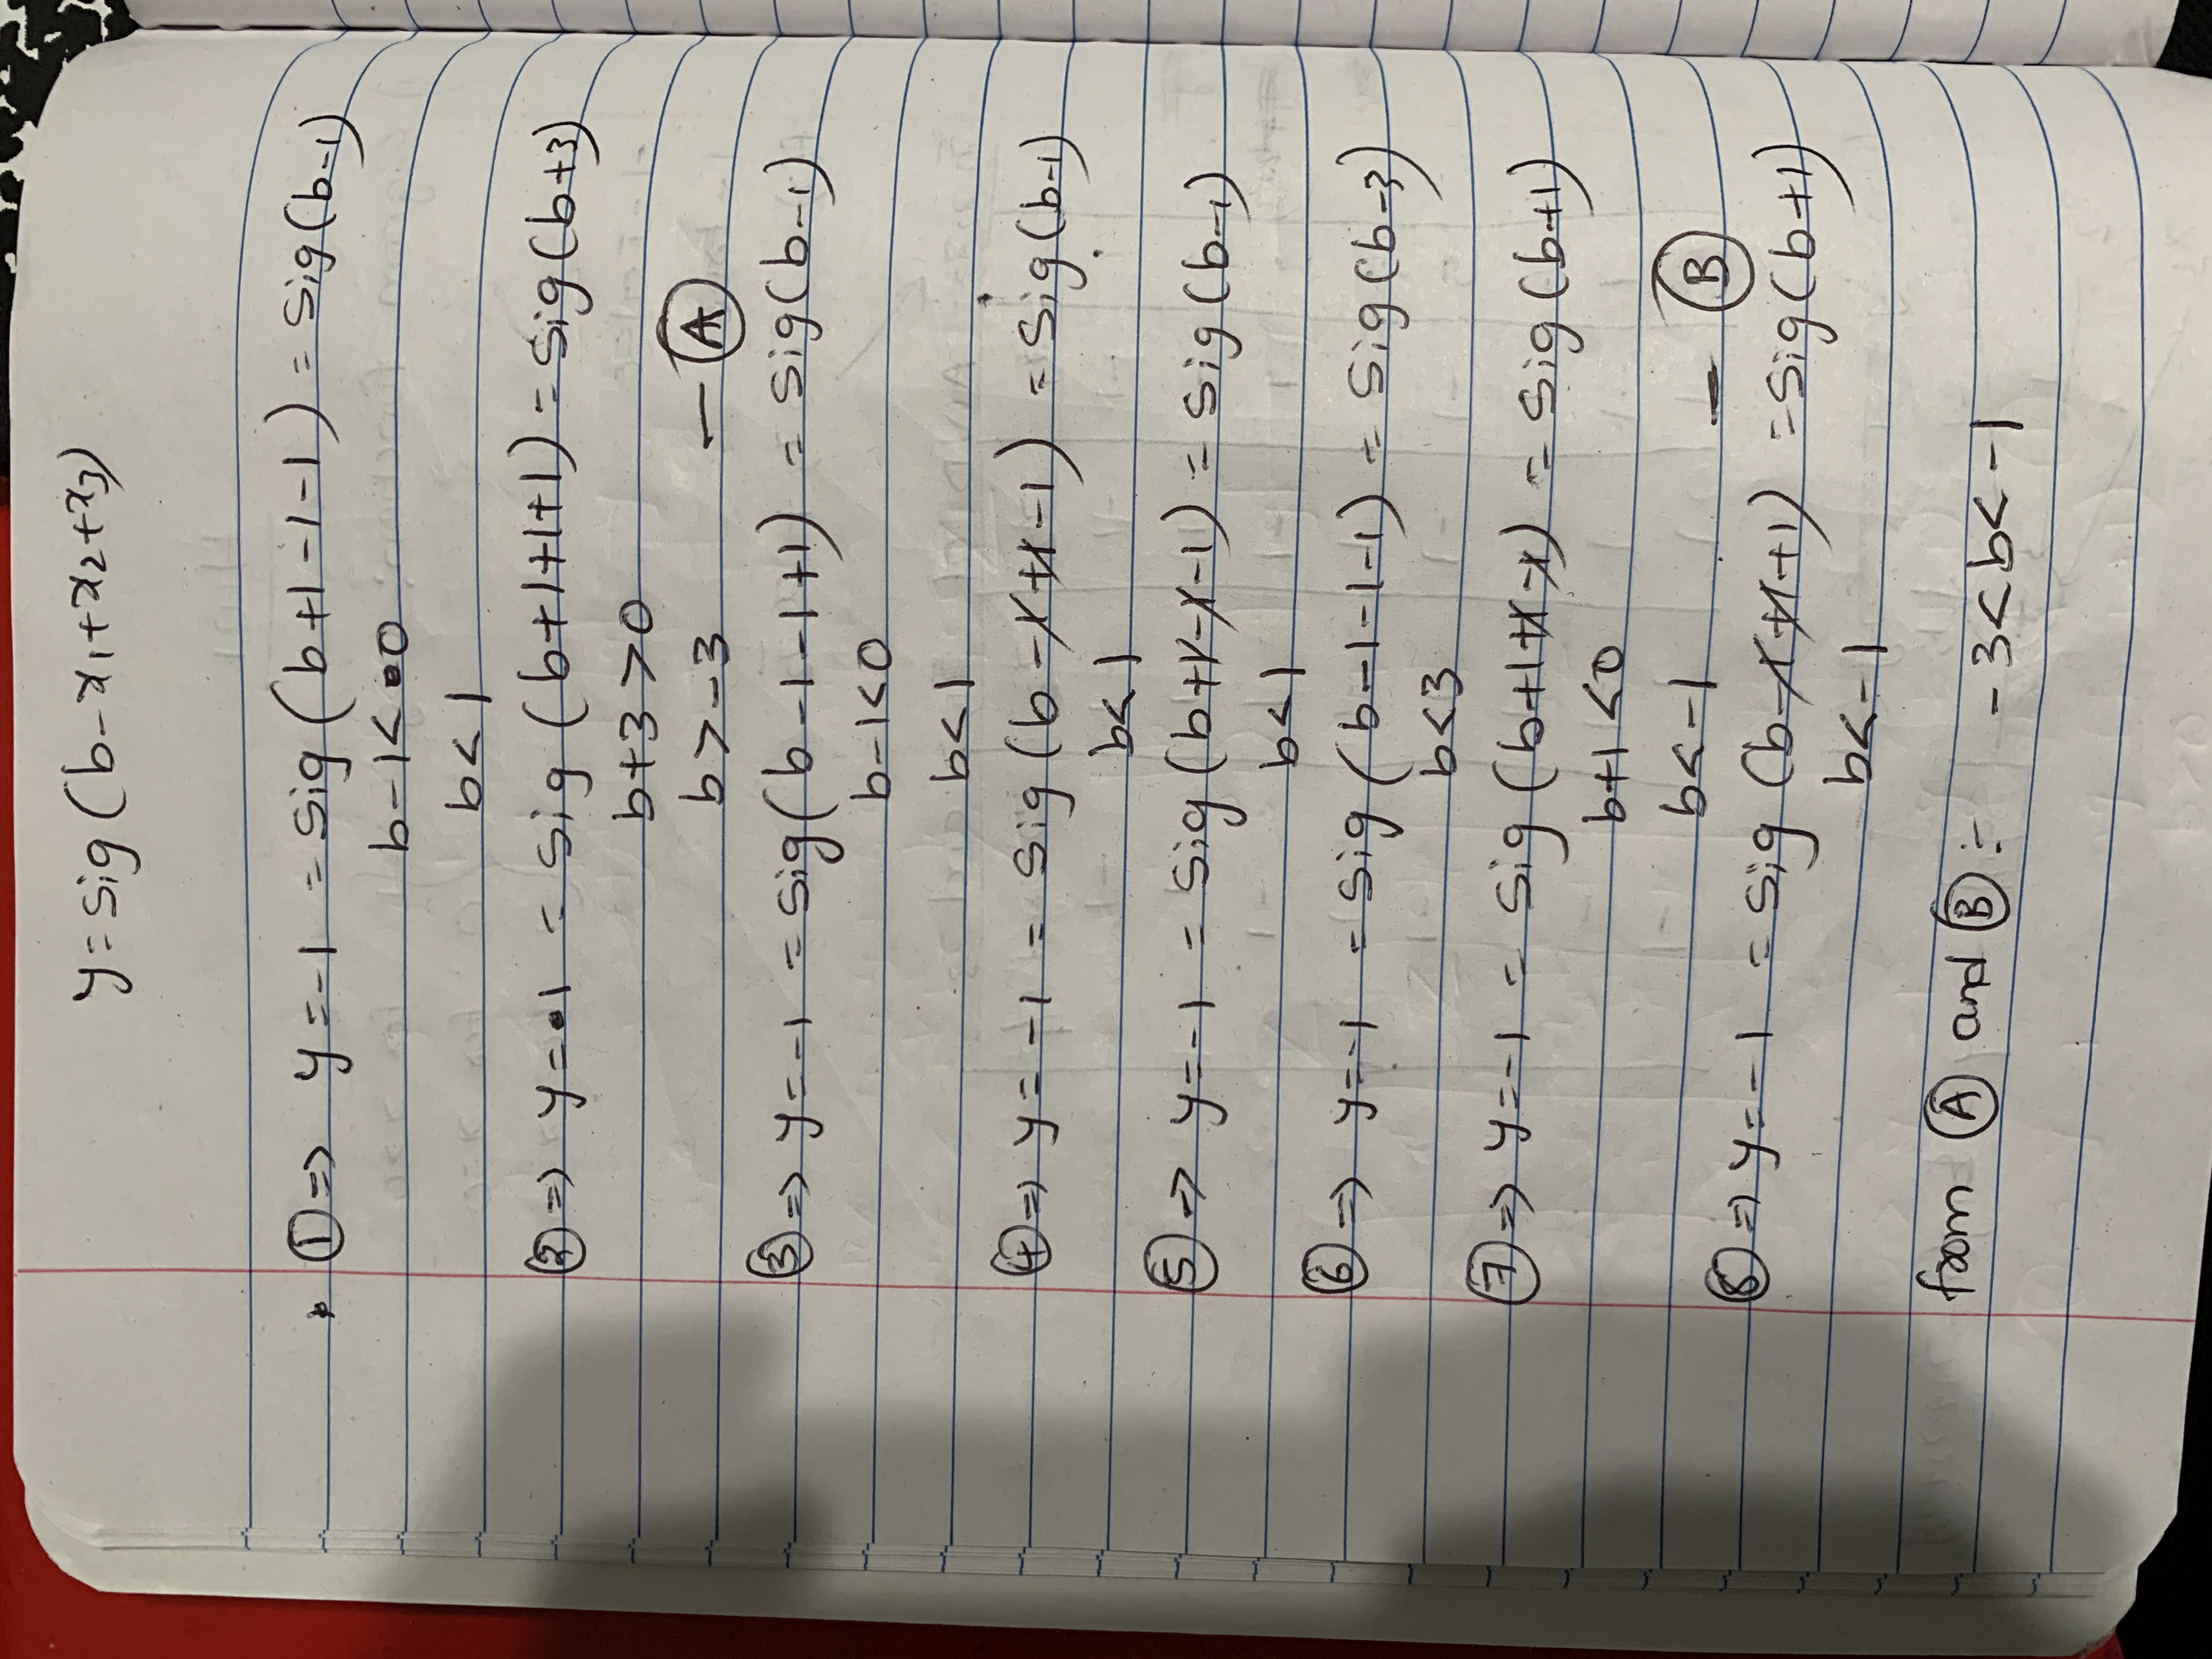 y = sig (b - x₁ + x₂ + x₃)
① => y = -1 = sig (b+1-1-1) = sig(b-1)
b-1<0
b<1
② => y = 1 = sig (b+1+1+1) = sig(b+3)
b+3>0
b>-3 — Ⓐ
③ => y = -1 = sig(b-1-1+1) = sig(b-1)
b-1<0
b<1
④ => y = -1 = sig (b-1+1-1) = sig(b-1)
b<1
⑤ -> y = -1 = sig (b+1-1-1) = sig(b-1)
b<1
⑥ => y = -1 = sig (b-1-1-1) = sig(b-3)
b<3
⑦ => y = -1 = sig (b+1+1-1) = sig(b+1)
b+1<0
b<-1 — Ⓑ
⑧ => y = -1 = sig (b-1+1+1) = sig(b+1)
b<-1
from Ⓐ and Ⓑ :- -3<b<-1